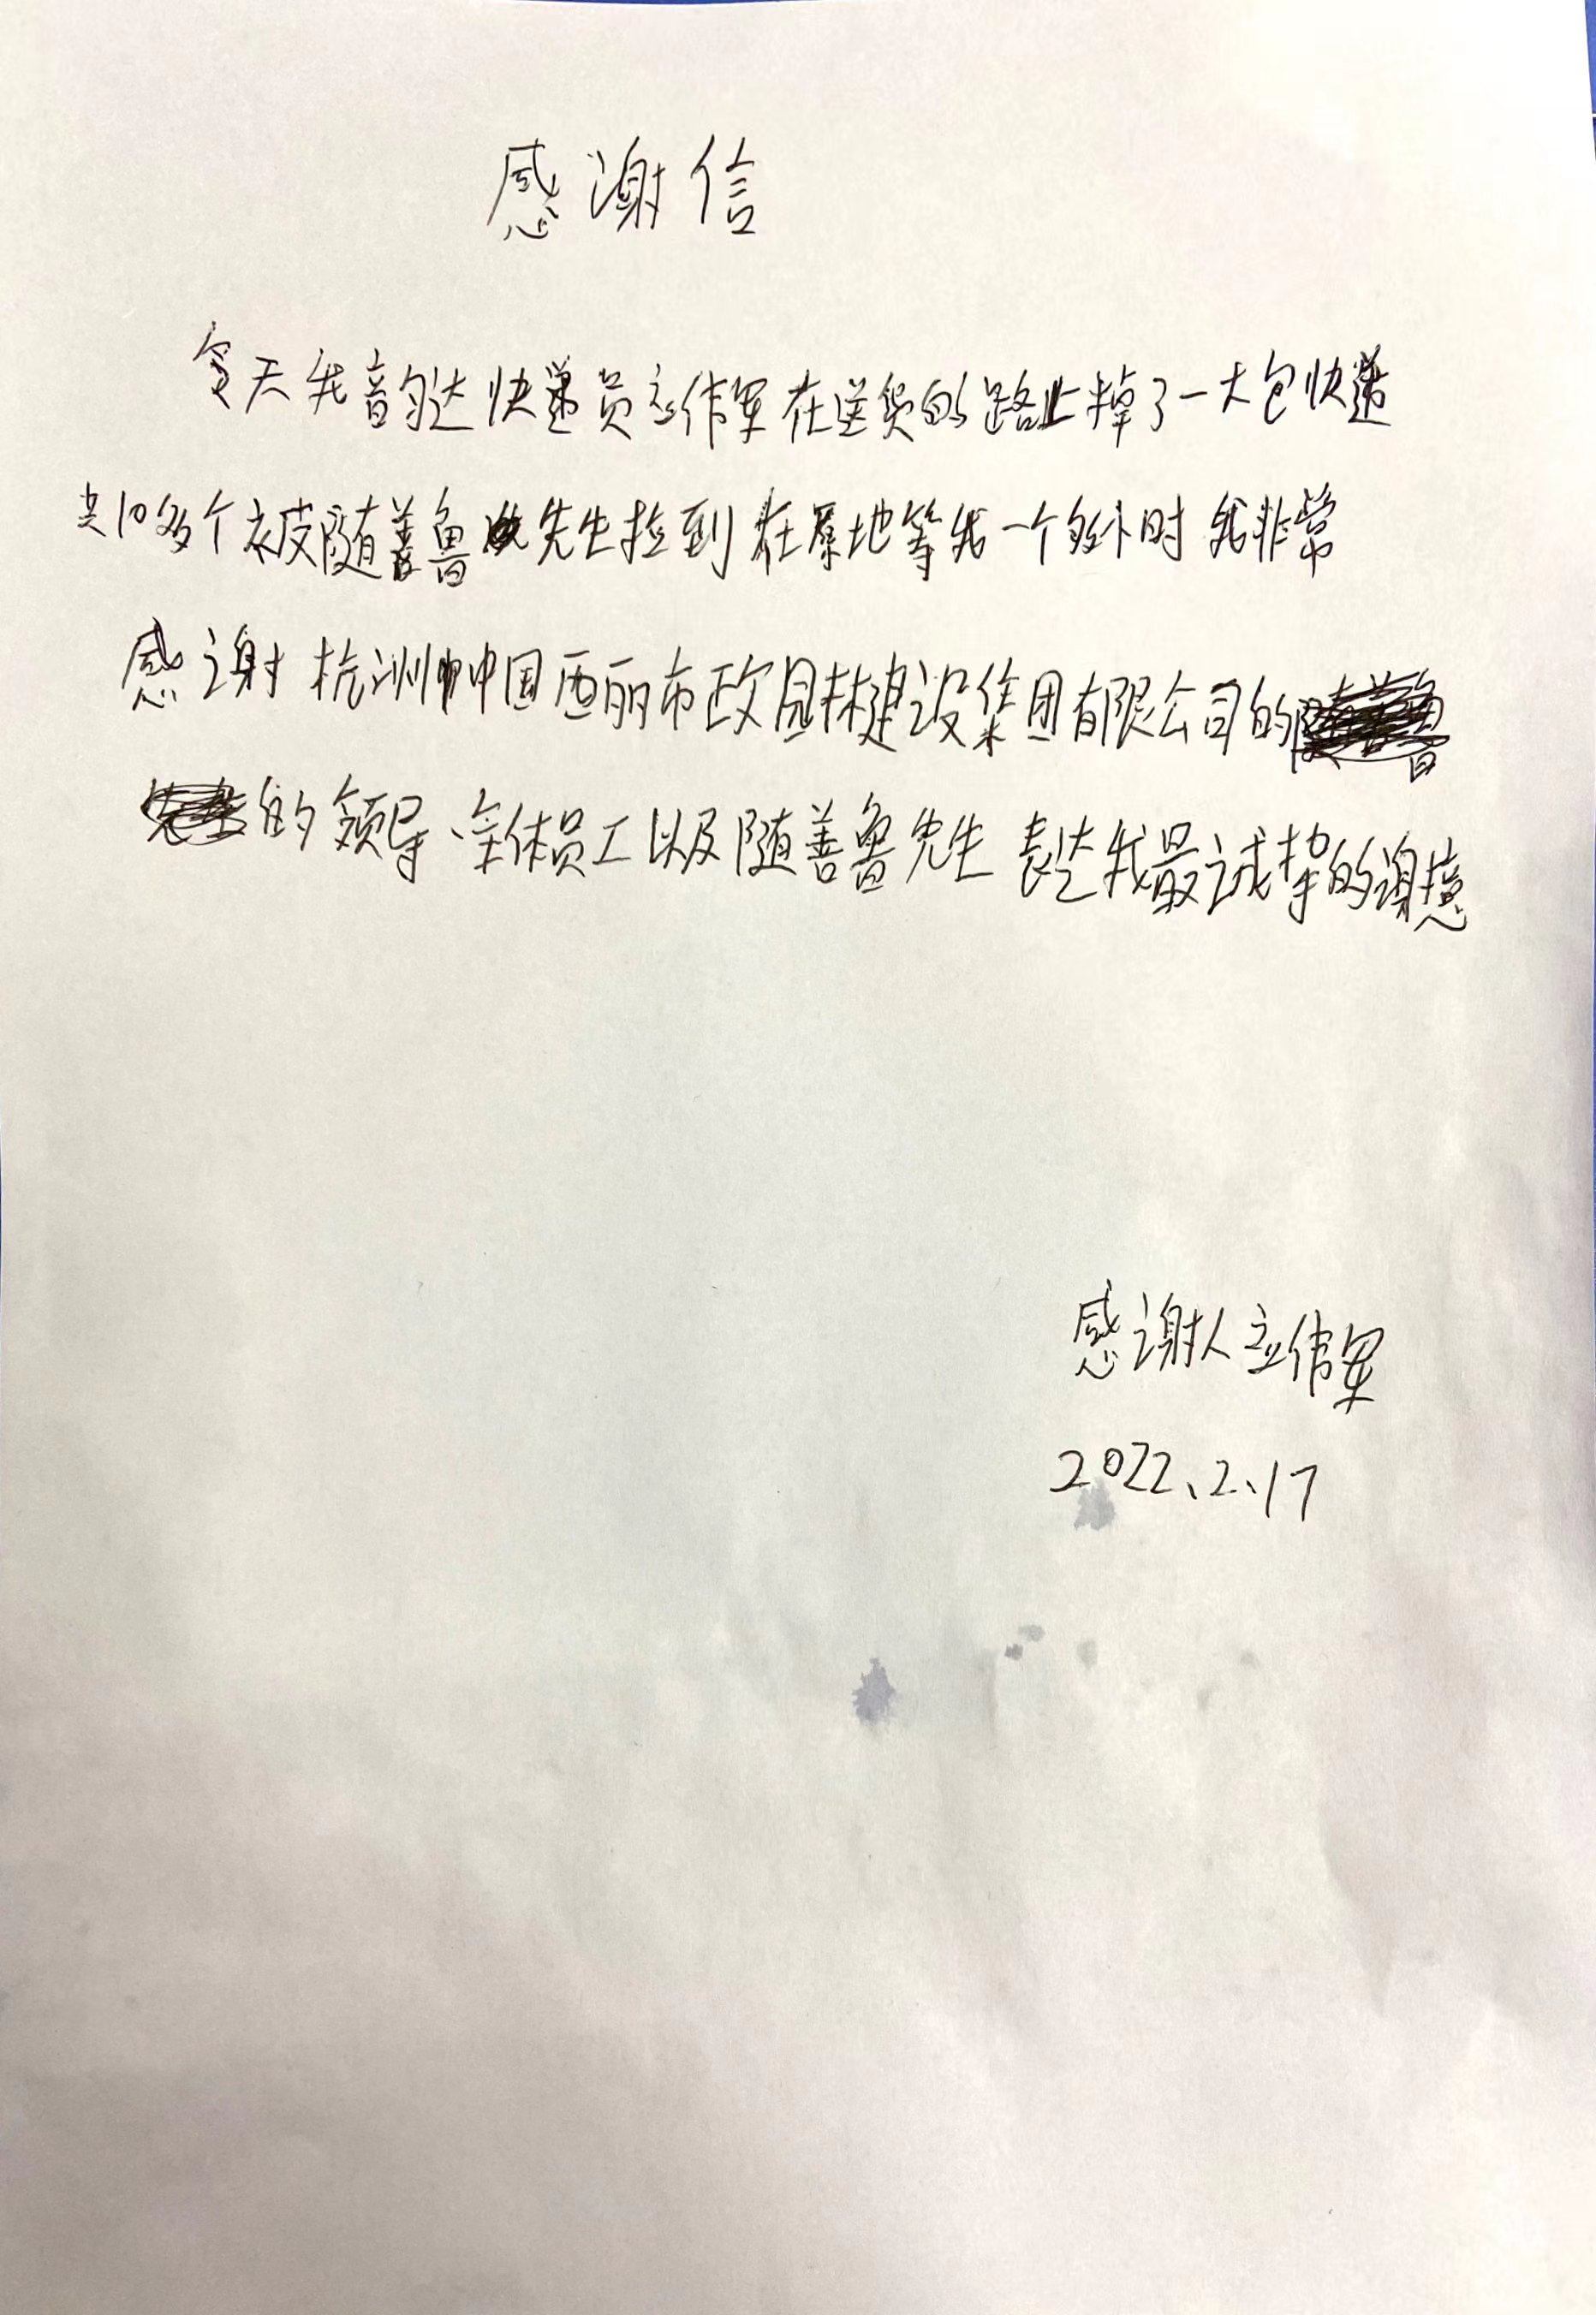 感谢信
今天我韵达快递员应伟军在送货的路上掉了一大包快递
共10多个被随善鲁先生捡到在原地等我一个多小时我非常
感谢杭州中国西丽市政园林建设集团有限公司的
的领导、全体员工以及随善鲁先生表达我最诚挚的谢意
感谢人应伟军
2022、2、17